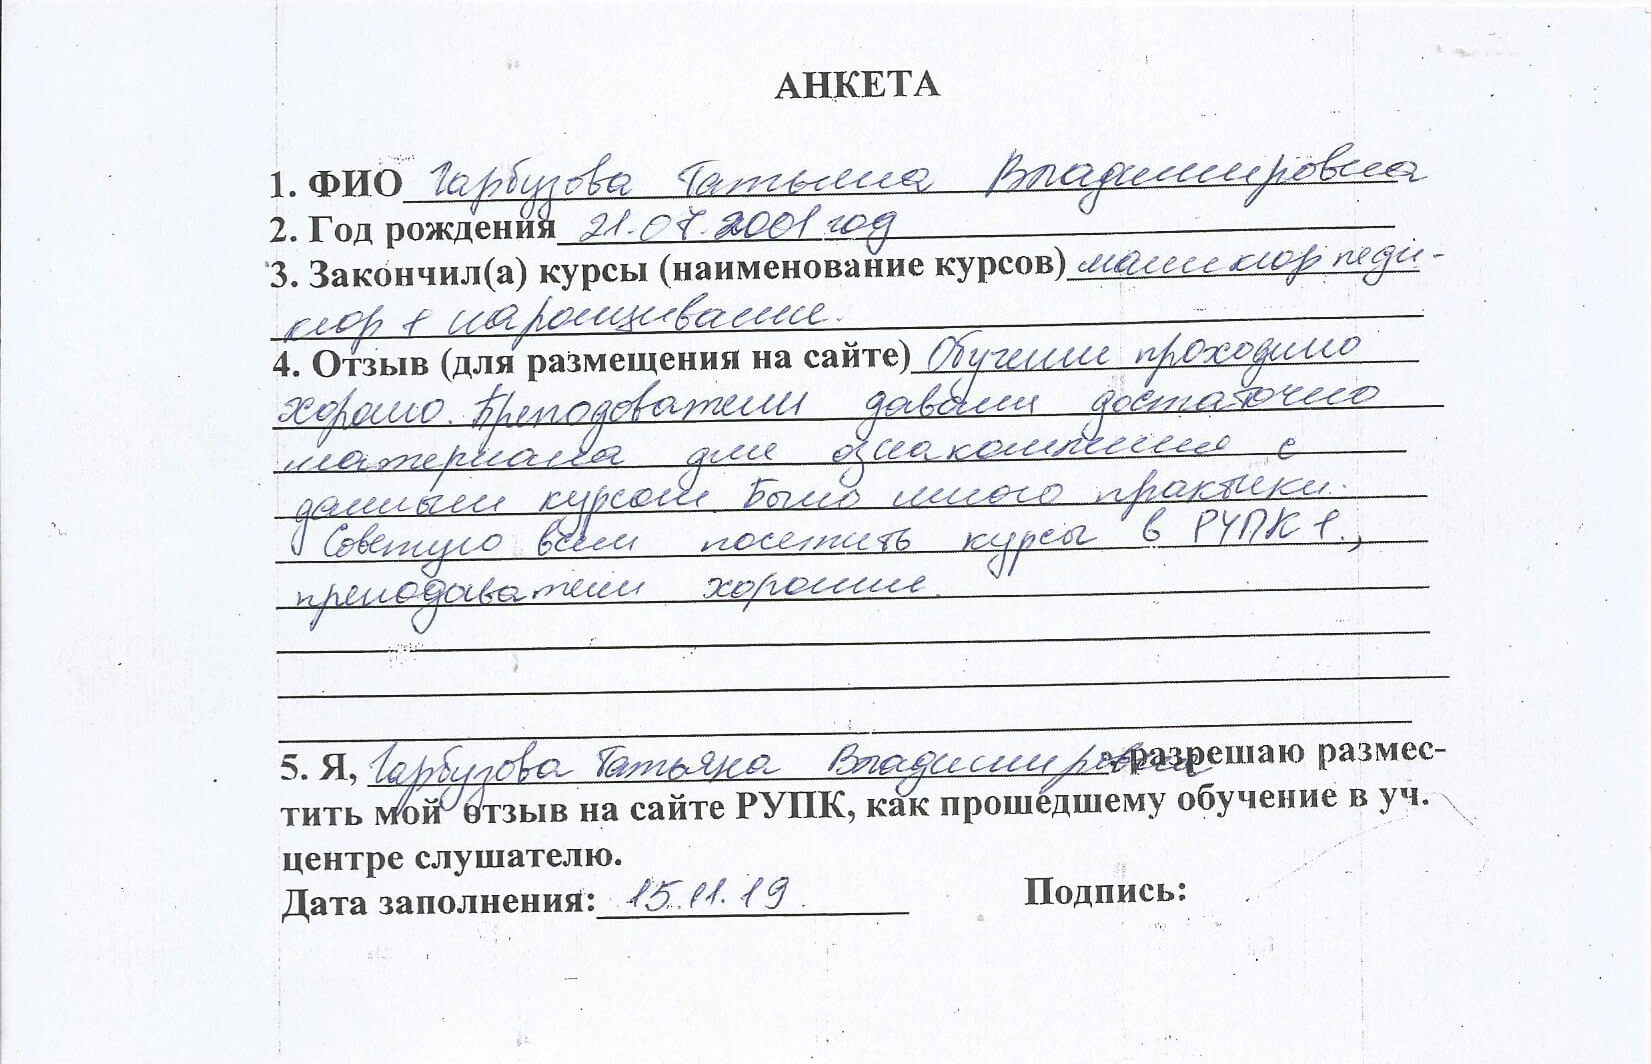 АНКЕТА
1. ФИО Гарбузова Татьяна Владимировна
2. Год рождения 21.07.2001 год
3. Закончил(а) курсы (наименование курсов) маникюр педи-
кюр + наращивание.
4. Отзыв (для размещения на сайте) Обучение проходило
хорошо. Преподователи давали достаточно
материала для ознакомления с
данным курсом. Было много практики.
Советую всем посетить курсы в РУПК 1.,
преподаватели хорошие.
5. Я, Гарбузова Татьяна Владимировна, разрешаю размес-
тить мой отзыв на сайте РУПК, как прошедшему обучение в уч.
центре слушателю.
Дата заполнения: 15.11.19. Подпись: